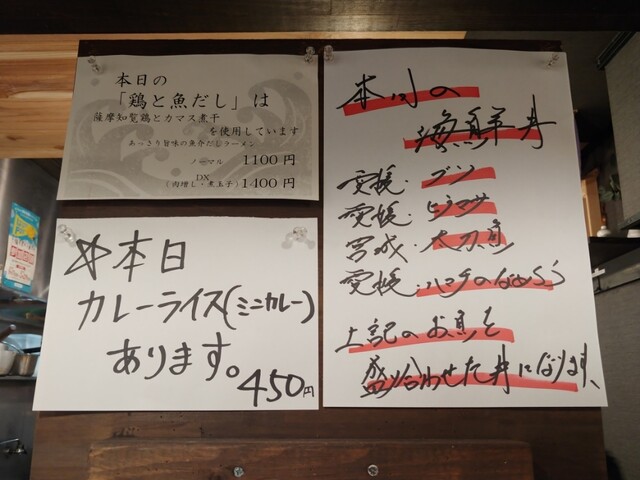 本日の
「鶏と魚だし」は
薩摩知覧鶏とカマス煮干
を使用しています
あっさり旨味の魚介だしラーメン
ノーマル 1100円
DX
(肉増し・煮玉子) 1400円
☆本日
カレーライス(ミニカレー)
あります。
450円
本日の
海鮮丼
愛媛・ブリ
愛媛・ヒラマサ
宮城・太刀魚
愛媛・ハマチのなめろう
上記のお魚を
盛り合わせた丼になります、